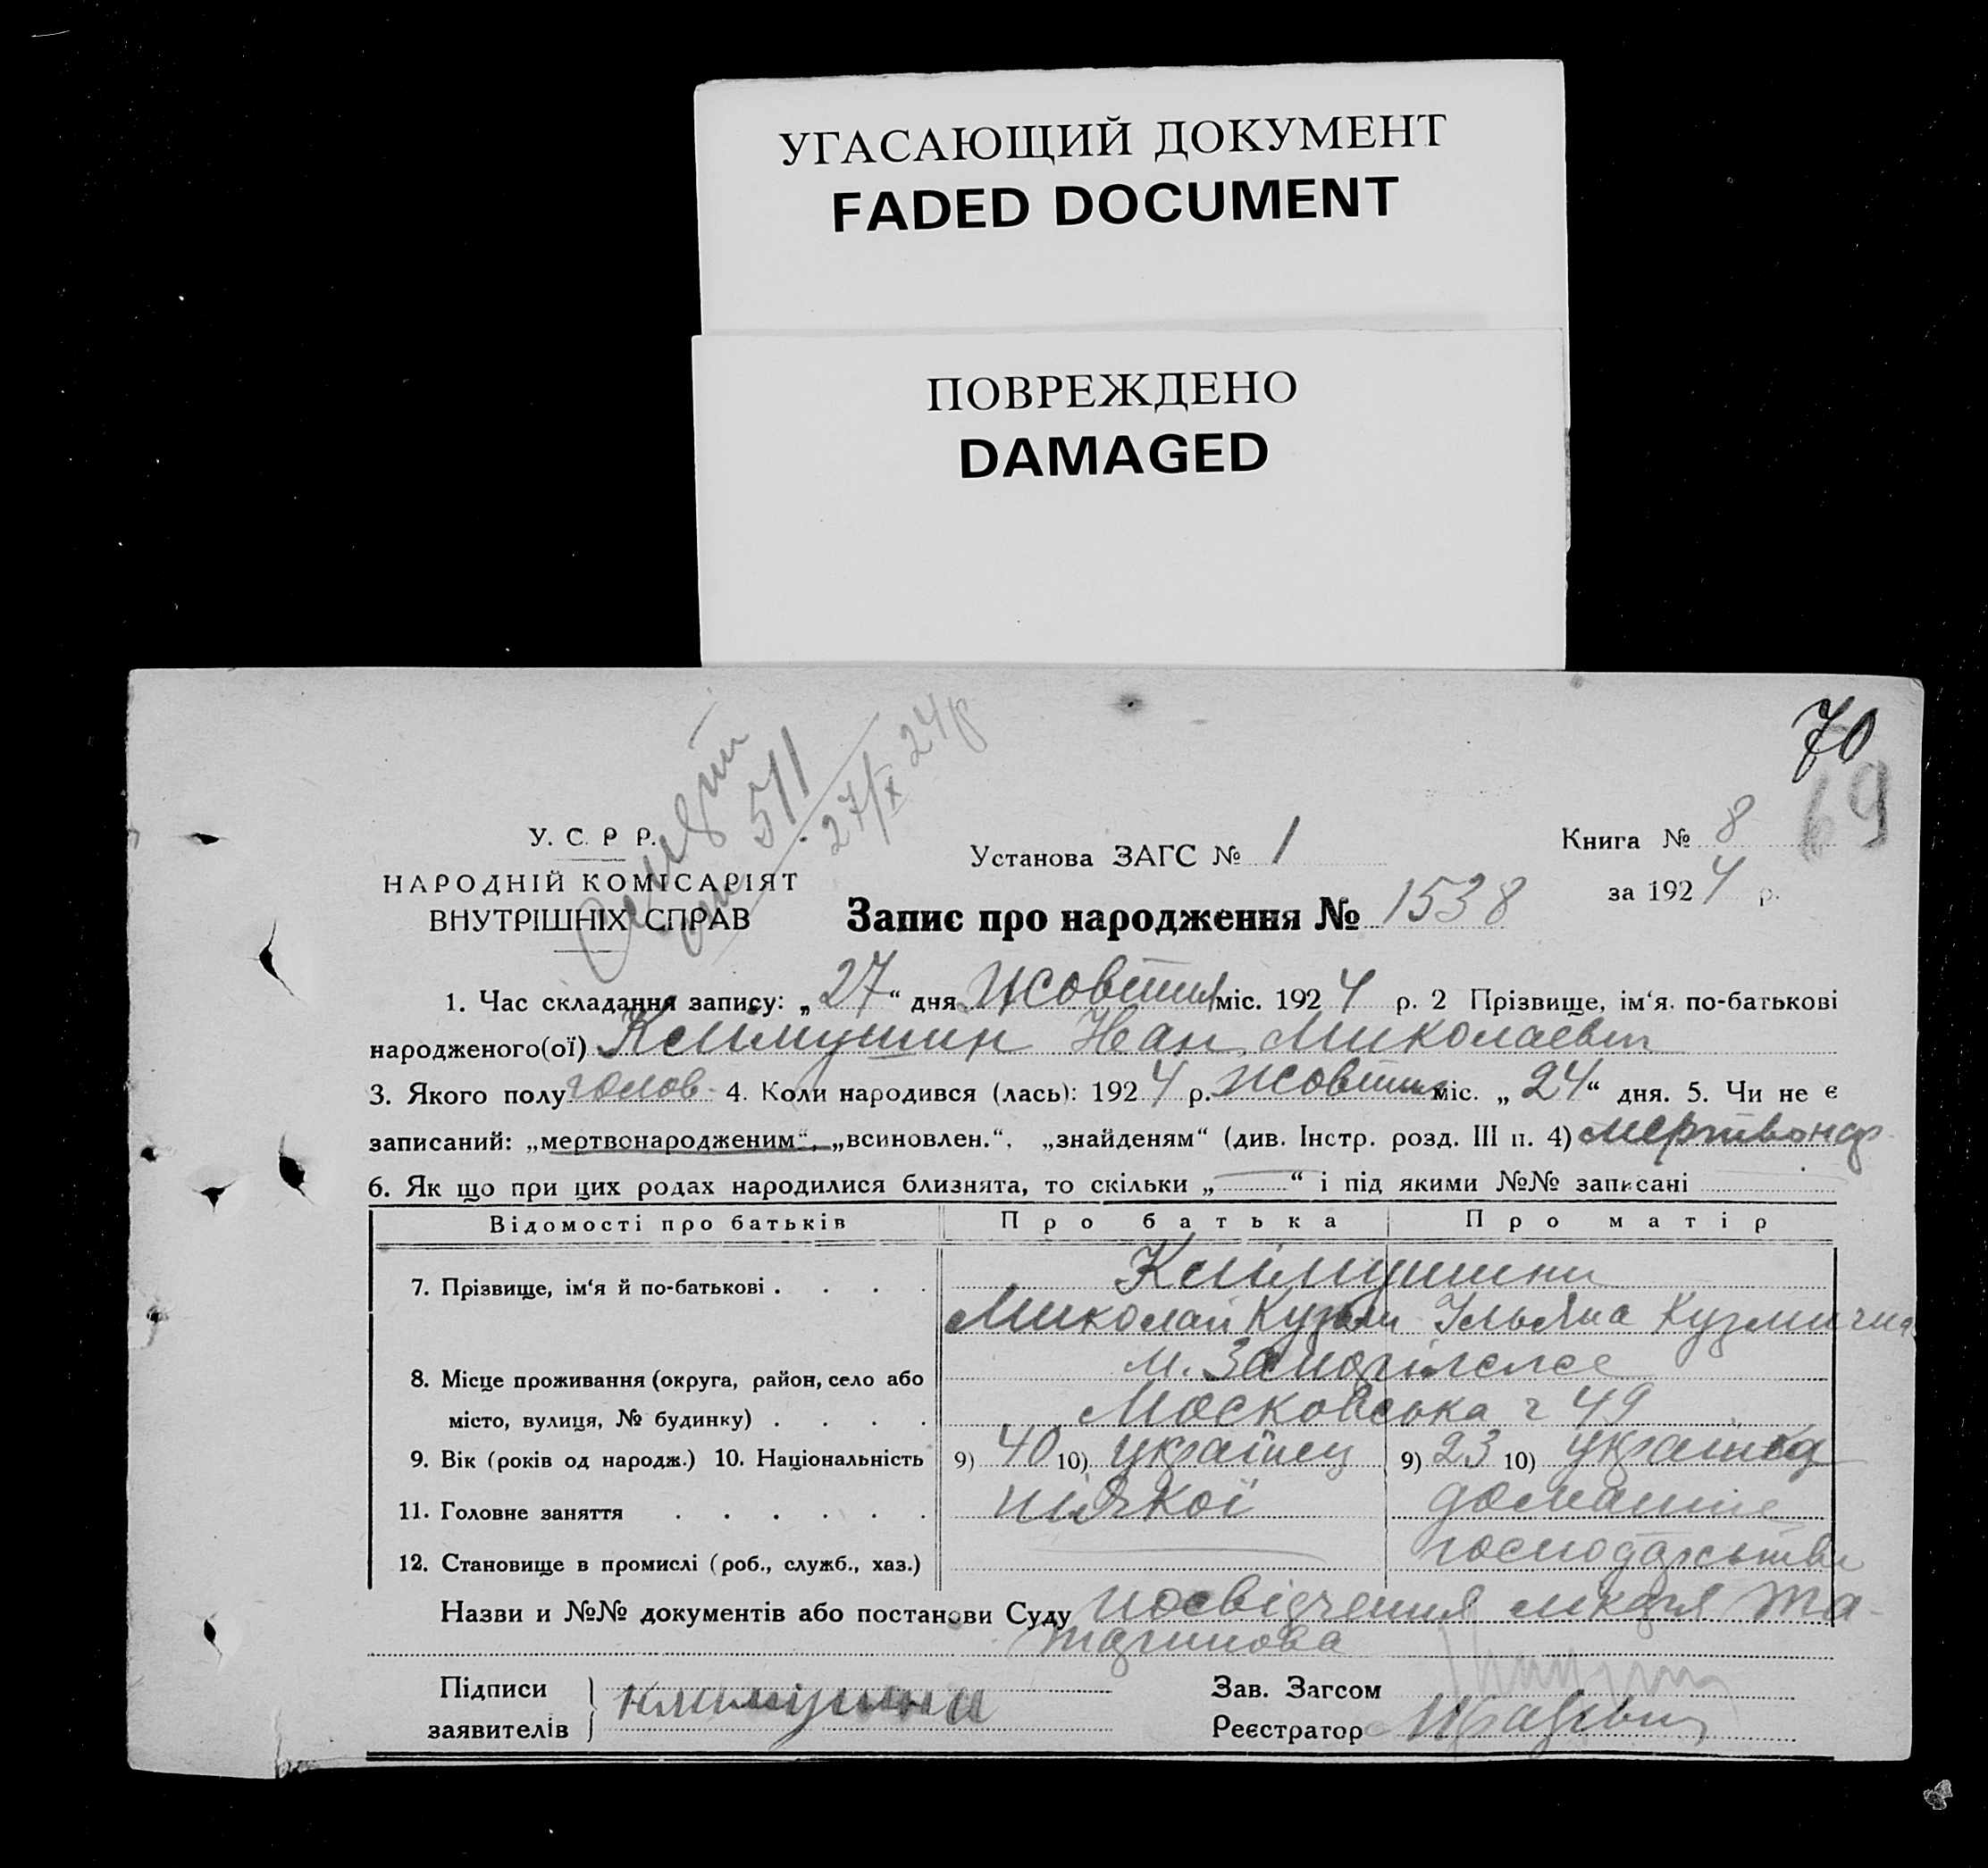 УГАСАЮЩИЙ ДОКУМЕНТ
FADED DOCUMENT
ПОВРЕЖДЕНО
DAMAGED
70
69
511
27/X 24р
У. С. Р Р.
НАРОДНІЙ КОМІСАРІЯТ
ВНУТРІШНІХ СПРАВ
Установа ЗАГС № 1
Книга № 8
за 1924 р.
Запис про народження № 1538
1. Час складання запису: „27“ дня Жовтня міс. 1924 р. 2 Прізвище, ім‘я. по-батькові
народженого(ої) Климушин Иван Миколаевич
3. Якого полу чолов. 4. Коли народився (лась): 1924 р. Жовтня міс. „24“ дня. 5. Чи не є
записаний: „мертвонародженим“, „всиновлен.“, „знайденям“ (див. Інстр. розд. III п. 4) мертвонар
6. Як що при цих родах народилися близнята, то скільки „ “ і під якими №№ записані
Відомості про батьків Про батька Про матір
7. Прізвище, ім‘я й по-батькові . . . . Климушини
Миколай Кузьм Ульяна Кузминична
8. Місце проживання (округа, район, село або м. Запоріжжє
місто, вулиця, № будинку) . . . . Московська 49
9. Вік (років од народж.) 10. Національність 9) 40 10) українец 9) 23 10) українка
11. Головне заняття . . . . . . ніякої домашнє
12. Становище в промислі (роб., служб., хаз.) господарство
Назви и №№ документів або постанови Суду посвідчення лікаря
Підписи
заявителів
климушин
Зав. Загсом
Реєстратор